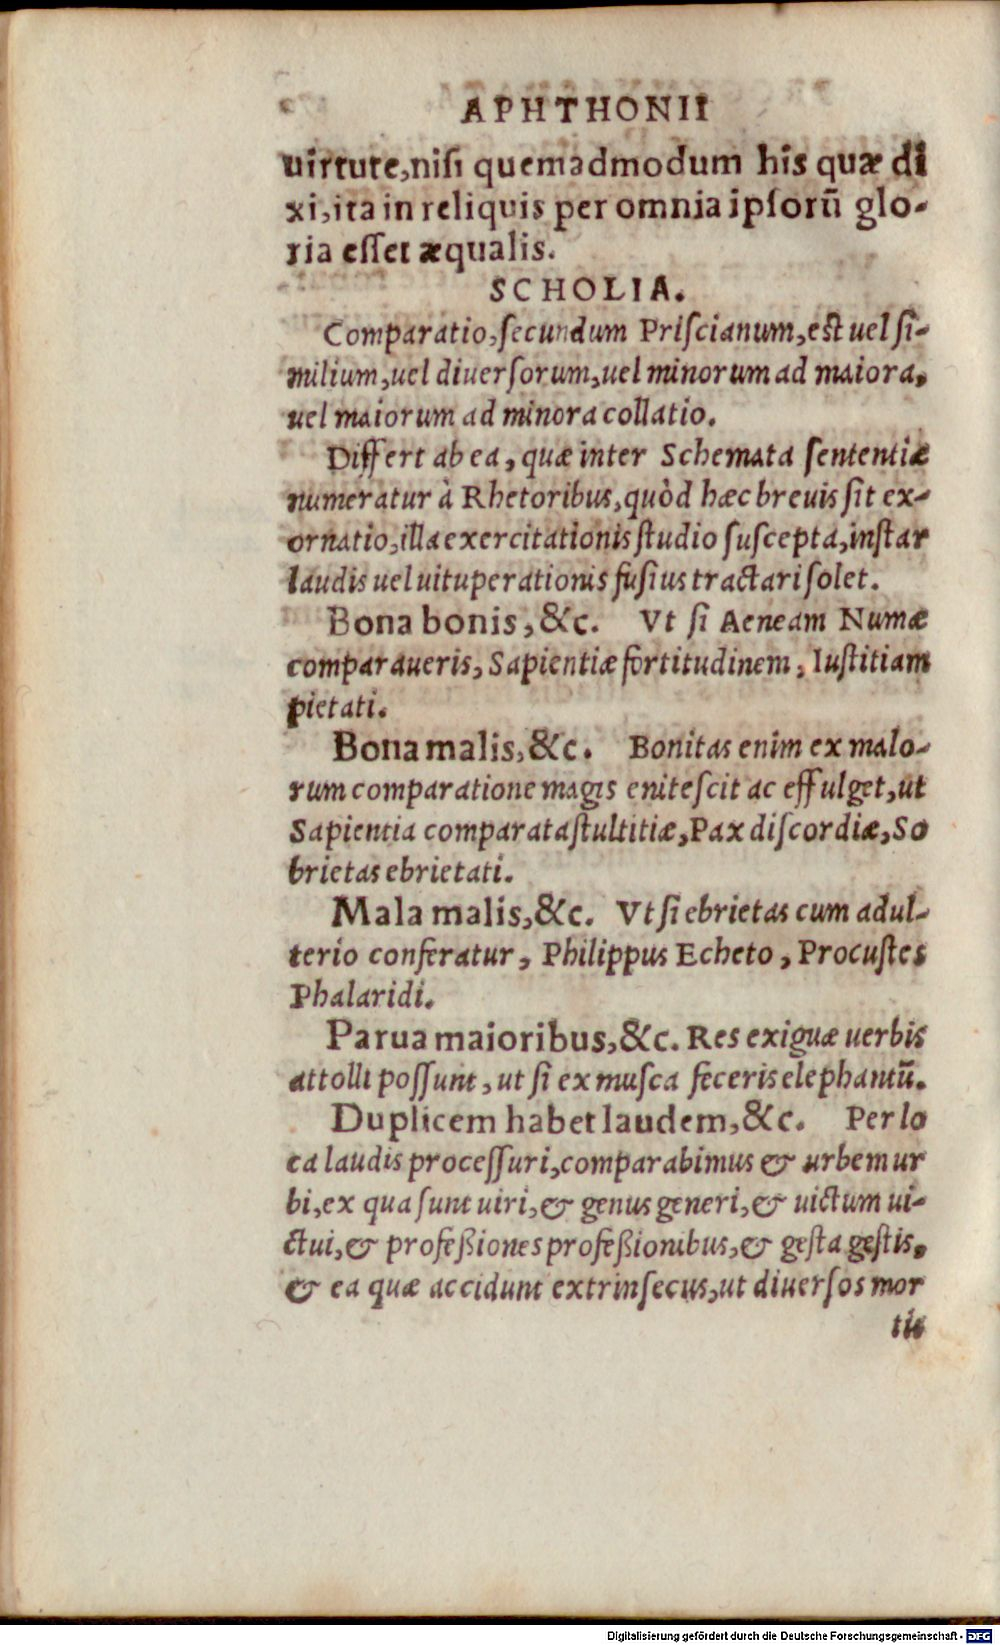 APHTHONII
uirtute,nisi quemadmodum his quæ di
xi,ita in reliquis per omnia ipsorũ glo-
ria esset æqualis.
SCHOLIA.
Comparatio,secundum Priscianum,est uel si-
milium,uel diuersorum,uel minorum ad maiora,
uel maiorum ad minora collatio.
Differt ab ea, quæ inter Schemata sententiæ
numeratur à Rhetoribus,quòd hæc breuis sit ex-
ornatio,illa exercitationis studio suscepta,instar
laudis uel uituperationis fusius tractari solet.
Bona bonis, &c. Vt si Aeneam Numæ
comparaueris, Sapientiæ fortitudinem, Iustitiam
pietati.
Bona malis,&c. Bonitas enim ex malo-
rum comparatione magis enitescit ac effulget,ut
Sapientia comparata stultitiæ,Pax discordiæ,So
brietas ebrietati.
Mala malis,&c. Vt si ebrietas cum adul-
terio conferatur, Philippus Echeto, Procustes
Phalaridi.
Parua maioribus,&c. Res exiguæ uerbis
attolli possunt, ut si ex musca feceris elephantũ.
Duplicem habet laudem,&c. Per lo
ca laudis processuri,comparabimus & urbem ur
bi,ex qua sunt uiri,& genus generi,& uictum ui-
ctui,& profeßiones profeßionibus,& gesta gestis,
& ea quæ accidunt extrinsecus,ut diuersos mor
tis
Digitalisierung gefördert durch die Deutsche Forschungsgemeinschaft - DFG